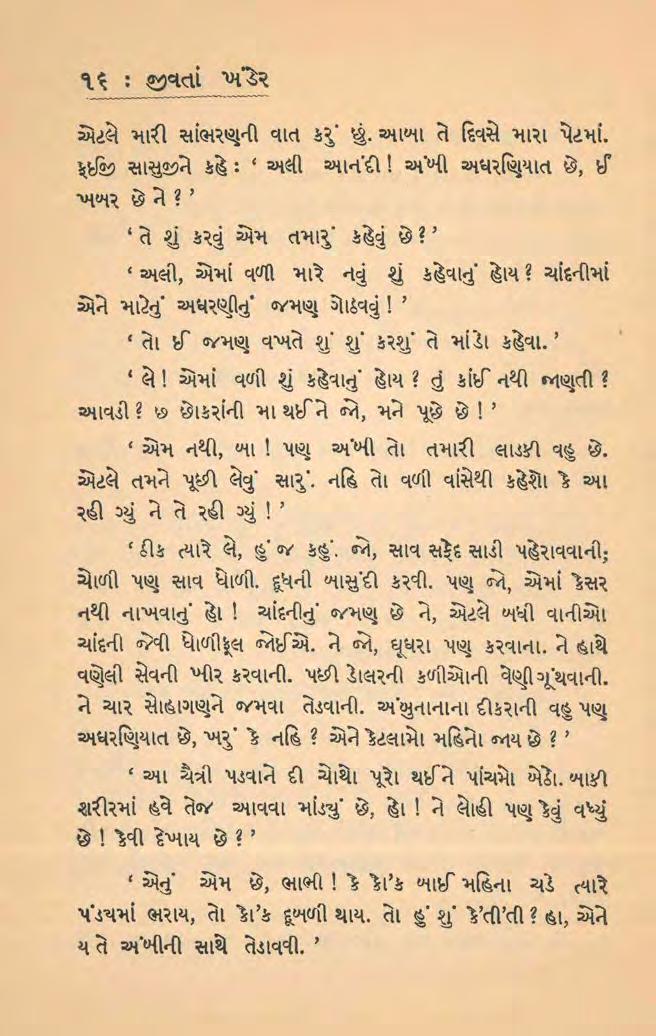 ૧૬ : જીવતાં ખંડેર
એટલે મારી સાંભરણની વાત કરું છું. આબા તે દિવસે મારા પેટમાં.
ફઇજી સાસુજીને કહે : ‘ અલી આનંદી ! અંબી અઘરણિયાત છે, ઈ
ખબર છે ને ? ’
‘ તે શું કરવું એમ તમારું કહેવું છે ? ’
‘ અલી, એમાં વળી મારે નવું શું કહેવાનું હોય ? ચાંદનીમાં
એને માટેનું અઘરણીનું જમણ ગોઠવવું ! ’
‘ તો ઈ જમણ વખતે શું શું કરશું તે માંડો કહેવા. ’
‘ લે ! એમાં વળી શું કહેવાનું હોય ? તું કાંઈ નથી જાણતી ?
આવડી ? છ છોકરાંની મા થઈને જો, મને પૂછે છે ! ’
‘ એમ નથી, બા ! પણ અંબી તો તમારી લાડકી વહુ છે.
એટલે તમને પૂછી લેવું સારું. નહિ તો વળી વાંસેથી કહેશો કે આ
રહી ગ્યું ને તે રહી ગ્યું ! ’
‘ ઠીક ત્યારે લે, હું જ કહું. જો, સાવ સફેદ સાડી પહેરાવવાની;
ચોળી પણ સાવ ધોળી. દૂધની બાસુંદી કરવી. પણ જો, એમાં કેસર
નથી નાખવાનું હો ! ચાંદનીનું જમણ છે ને, એટલે બધી વાનીઓ
ચાંદની જેવી ધોળીફૂલ જોઈએ. ને જો, ઘૂઘરા પણ કરવાના. ને હાથે
વણેલી સેવની ખીર કરવાની. પછી ડોલરની કળીઓની વેણી ગૂંથવાની.
ને ચાર સોહાગણને જમવા તેડવાની. અંબુનાનાના દીકરાની વહુ પણ
અઘરણિયાત છે, ખરું કે નહિ ? એને કેટલામો મહિનો જાય છે ? ’
‘ આ ચૈત્રી પડવાને દી ચોથો પૂરો થઈને પાંચમો બેઠો. બાકી
શરીરમાં હવે તેજ આવવા માંડ્યું છે, હો ! ને લોહી પણ કેવું વધ્યું
છે ! કેવી દેખાય છે ? ’
‘ એનું એમ છે, ભાભી ! કે કો’ક બાઈ મહિના ચડે ત્યારે
પંડયમાં ભરાય, તો કો’ક દૂબળી થાય. તો હું શું કે’તી’તી ? હા, એને
ય તે અંબીની સાથે તેડાવવી. ’